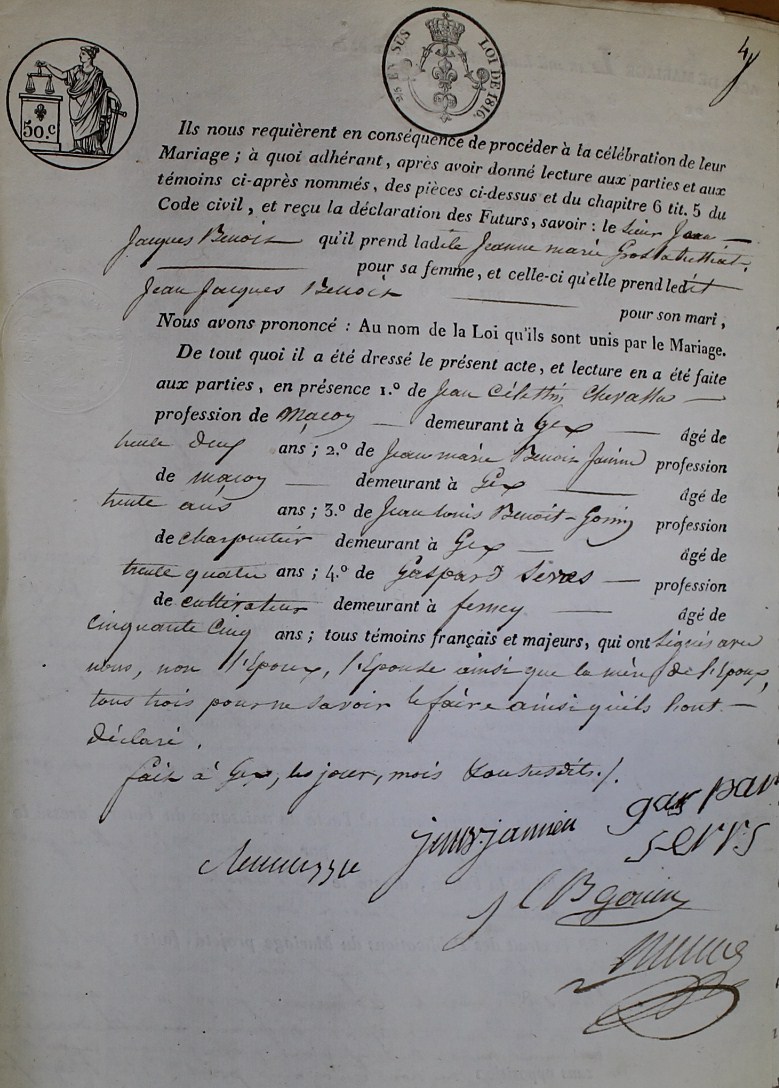 4
EN SUS LOI DE 1816.
50.c
Ils nous requièrent en conséquence de procéder à la célébration de leur
Mariage ; à quoi adhérant, après avoir donné lecture aux parties et aux
témoins ci-après nommés, des pièces ci-dessus et du chapitre 6 tit. 5 du
Code civil, et reçu la déclaration des Futurs, savoir : le Sieur Jean
Jacques Benoit qu'il prend ladite Jeanne marie
pour sa femme, et celle-ci qu'elle prend ledit
Jean Jacques Benoit
pour son mari,
Nous avons prononcé : Au nom de la Loi qu'ils sont unis par le Mariage.
De tout quoi il a été dressé le présent acte, et lecture en a été faite
aux parties, en présence 1.º de Jean Célestin
profession de Maçon demeurant à Gex âgé de
trente deux ans ; 2.º de Jean marie Benoit Janin profession
de maçon demeurant à Gex âgé de
trente ans ans ; 3.º de Jean Louis Benoit-Gonin profession
de charpentier demeurant à Gex âgé de
trente quatre ans ; 4.º de Gaspard Serres profession
de cultivateur demeurant à ferney âgé de
Cinquante Cinq ans ; tous témoins français et majeurs, qui ont Signés avec
nous, non l'Epoux, l'Epouse ainsi que la mère de l'Epoux,
tous trois pour ne savoir le faire ainsi qu'ils l'ont
Déclaré.
fait à Gex, les jour, mois & an susdits./.
gaspar
serrs